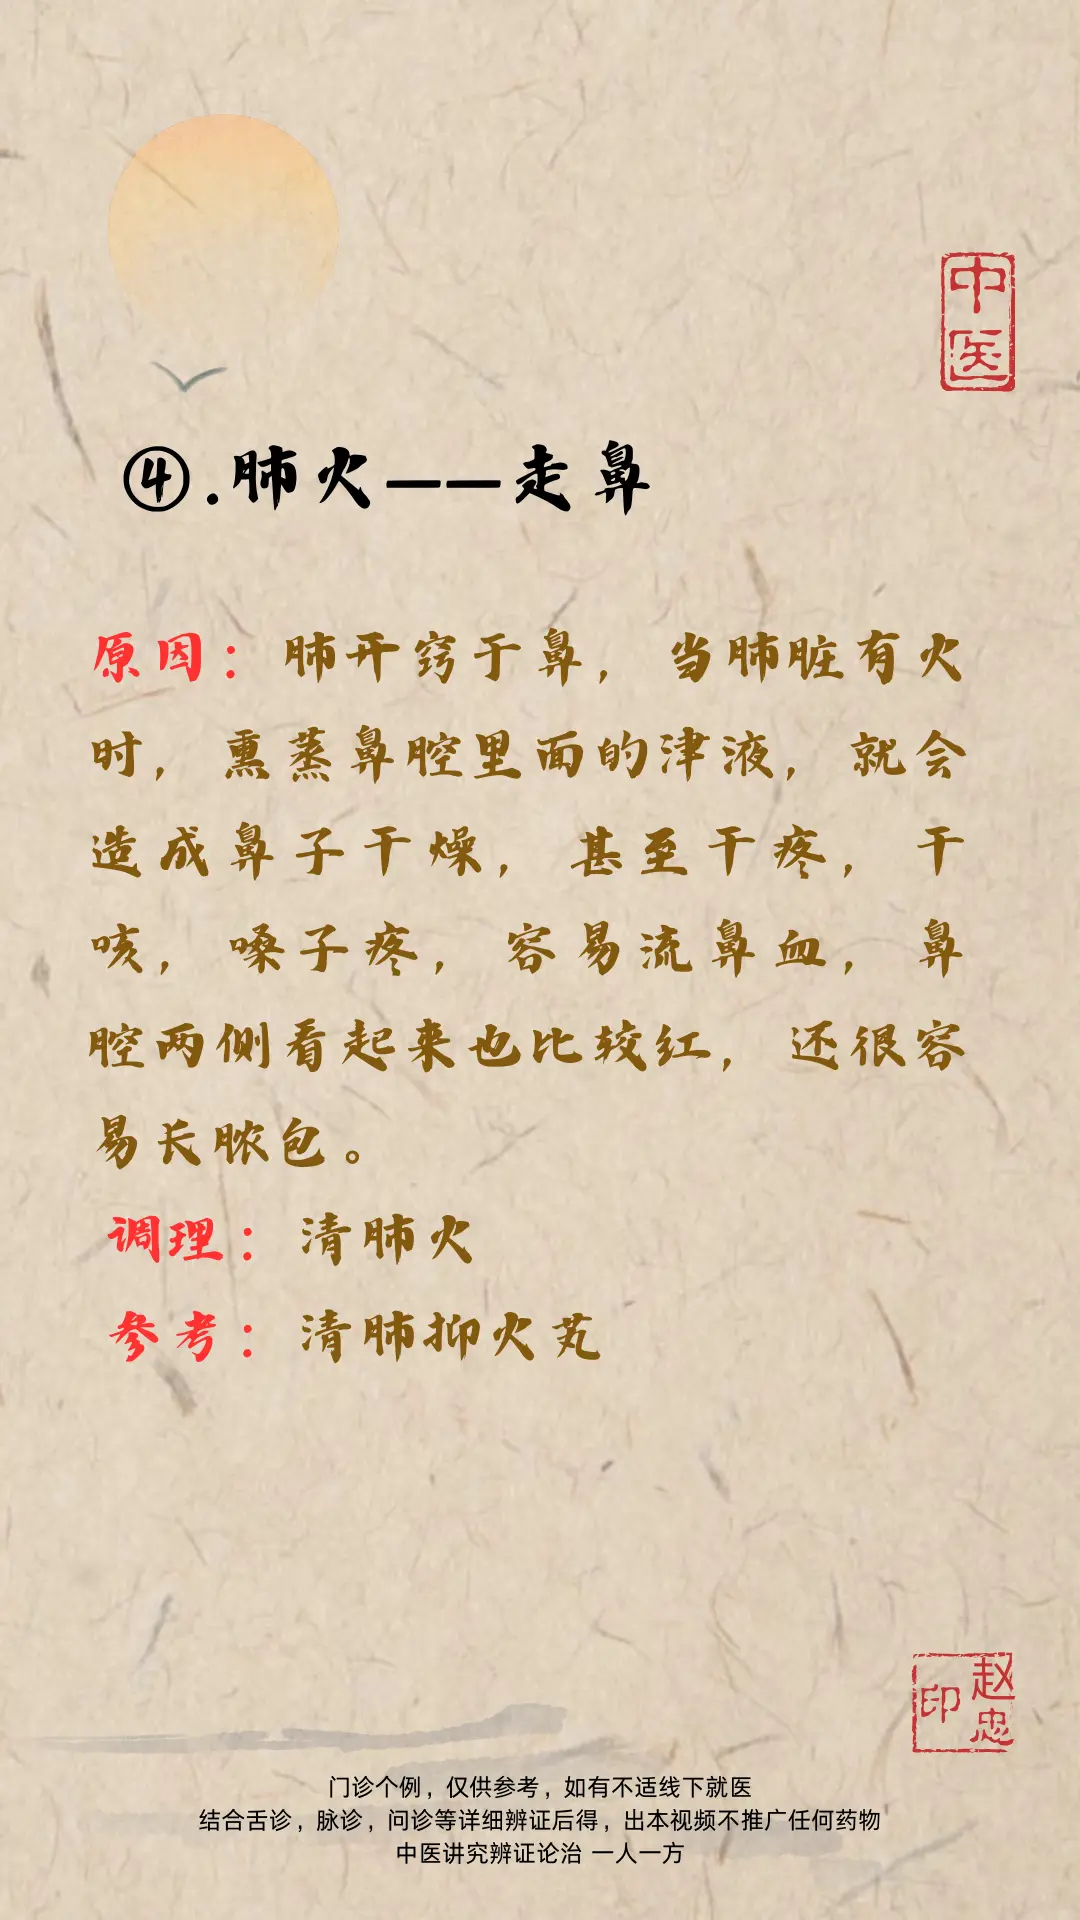 中医
④.肺火——走鼻
原因：肺开窍于鼻，当肺脏有火
时，熏蒸鼻腔里面的津液，就会
造成鼻子干燥，甚至干疼，干
咳，嗓子疼，容易流鼻血，鼻
腔两侧看起来也比较红，还很容
易长脓包。
调理：清肺火
参考：清肺抑火芄
赵忠印
门诊个例，仅供参考，如有不适线下就医
结合舌诊，脉诊，问诊等详细辨证后得，出本视频不推广任何药物
中医讲究辨证论治 一人一方